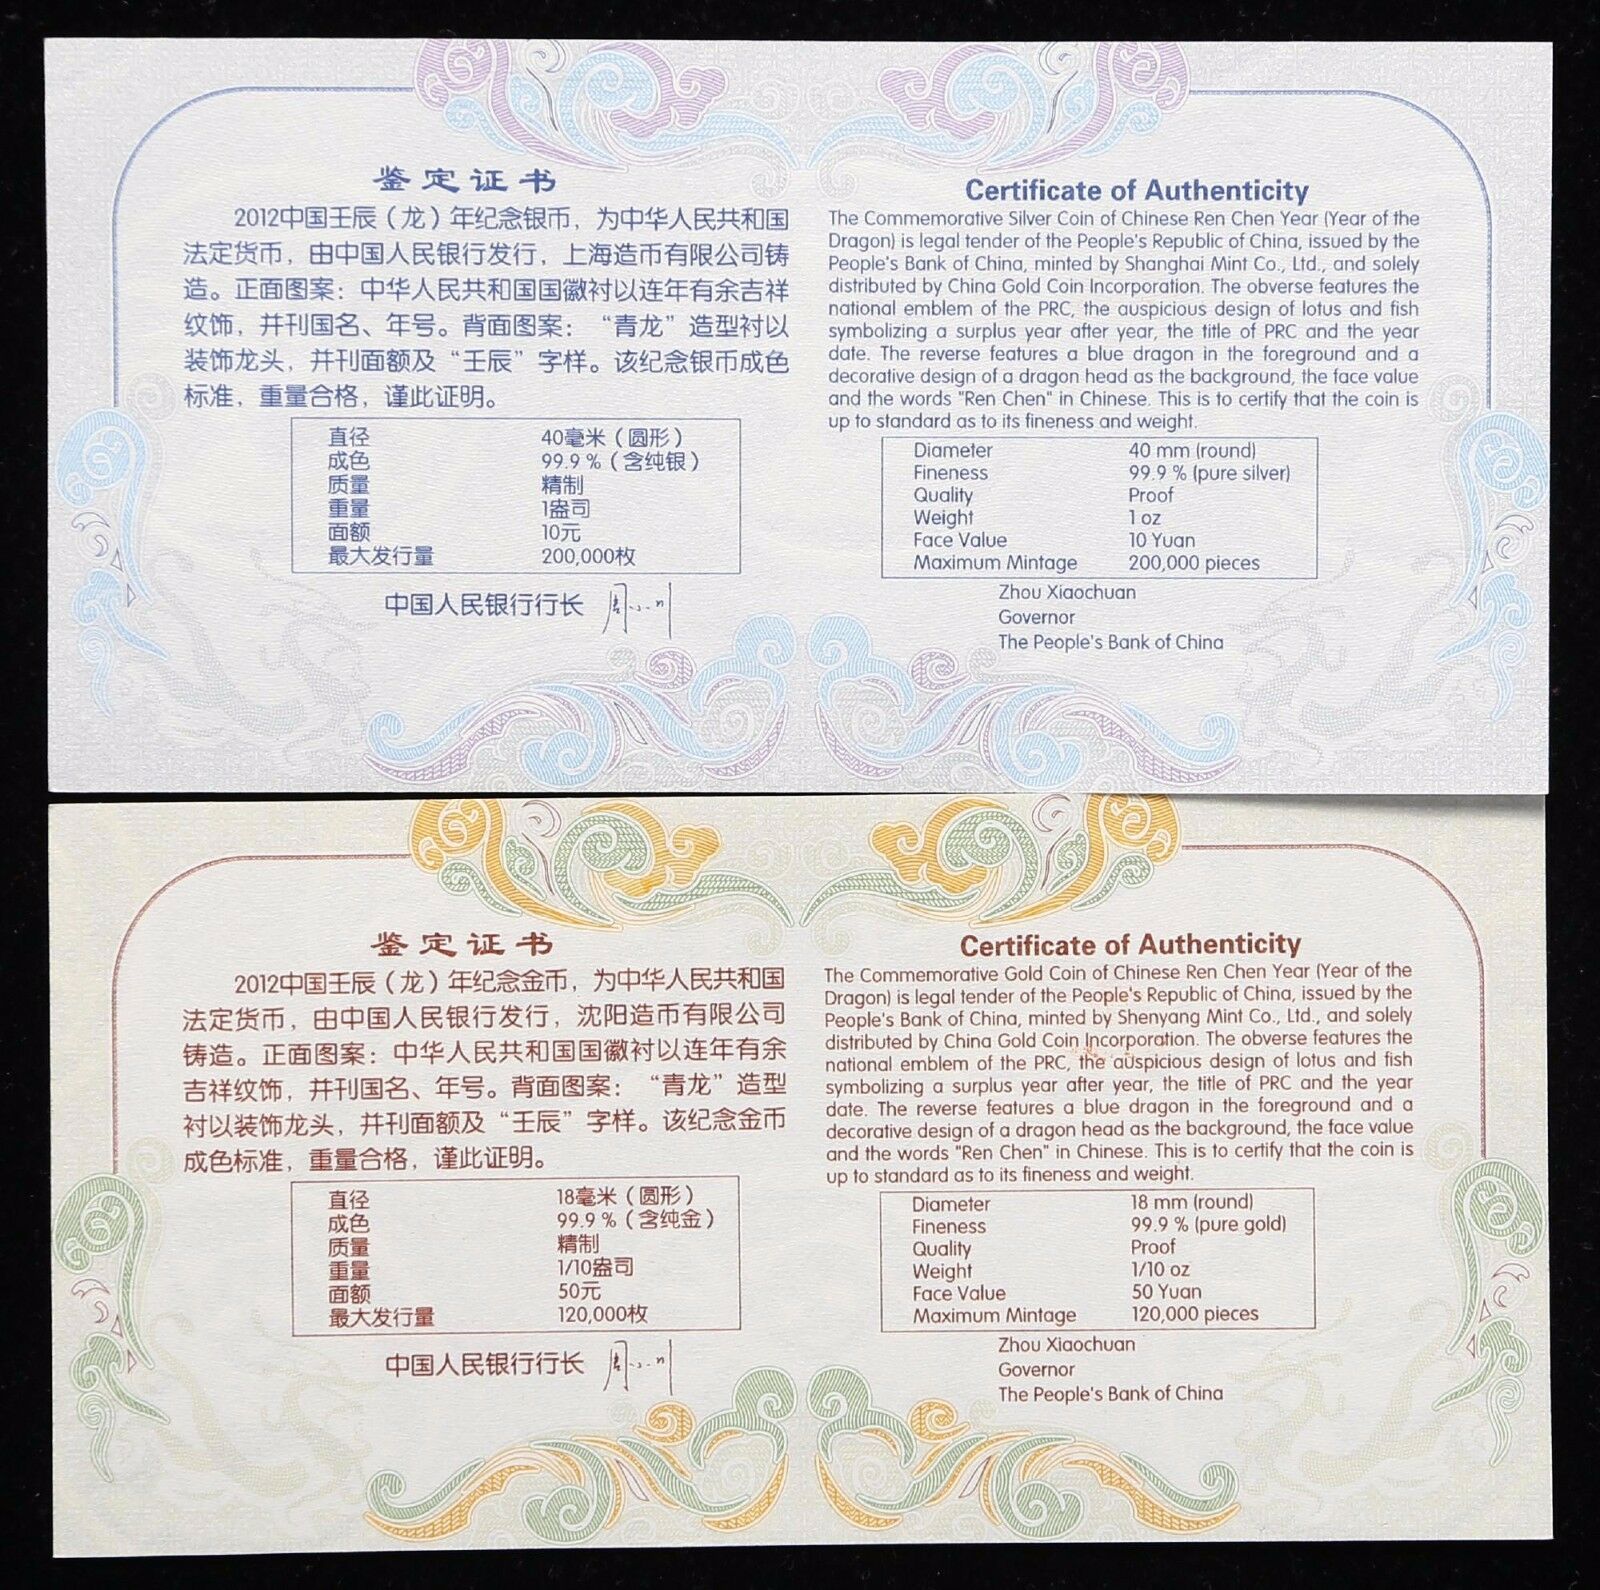 鉴定证书
2012中国壬辰（龙）年纪念银币，为中华人民共和国
法定货币，由中国人民银行发行，上海造币有限公司铸
造。正面图案：中华人民共和国国徽衬以连年有余吉祥
纹饰，并刊国名、年号。背面图案：“青龙”造型衬以
装饰龙头，并刊面额及“壬辰”字样。该纪念银币成色
标准，重量合格，谨此证明。
直径 40毫米（圆形）
成色 99.9 %（含纯银）
质量 精制
重量 1盎司
面额 10元
最大发行量 200,000枚
中国人民银行行长 周小川
Certificate of Authenticity
The Commemorative Silver Coin of Chinese Ren Chen Year (Year of the
Dragon) is legal tender of the People's Republic of China, issued by the
People's Bank of China, minted by Shanghai Mint Co., Ltd., and solely
distributed by China Gold Coin Incorporation. The obverse features the
national emblem of the PRC, the auspicious design of lotus and fish
symbolizing a surplus year after year, the title of PRC and the year
date. The reverse features a blue dragon in the foreground and a
decorative design of a dragon head as the background, the face value
and the words "Ren Chen" in Chinese. This is to certify that the coin is
up to standard as to its fineness and weight.
Diameter 40 mm (round)
Fineness 99.9 % (pure silver)
Quality Proof
Weight 1 oz
Face Value 10 Yuan
Maximum Mintage 200,000 pieces
Zhou Xiaochuan
Governor
The People's Bank of China
鉴定证书
2012中国壬辰（龙）年纪念金币，为中华人民共和国
法定货币，由中国人民银行发行，沈阳造币有限公司
铸造。正面图案：中华人民共和国国徽衬以连年有余
吉祥纹饰，并刊国名、年号。背面图案：“青龙”造型
衬以装饰龙头，并刊面额及“壬辰”字样。该纪念金币
成色标准，重量合格，谨此证明。
直径 18毫米（圆形）
成色 99.9 %（含纯金）
质量 精制
重量 1/10盎司
面额 50元
最大发行量 120,000枚
中国人民银行行长 周小川
Certificate of Authenticity
The Commemorative Gold Coin of Chinese Ren Chen Year (Year of the
Dragon) is legal tender of the People's Republic of China, issued by the
People's Bank of China, minted by Shenyang Mint Co., Ltd., and solely
distributed by China Gold Coin Incorporation. The obverse features the
national emblem of the PRC, the auspicious design of lotus and fish
symbolizing a surplus year after year, the title of PRC and the year
date. The reverse features a blue dragon in the foreground and a
decorative design of a dragon head as the background, the face value
and the words "Ren Chen" in Chinese. This is to certify that the coin is
up to standard as to its fineness and weight.
Diameter 18 mm (round)
Fineness 99.9 % (pure gold)
Quality Proof
Weight 1/10 oz
Face Value 50 Yuan
Maximum Mintage 120,000 pieces
Zhou Xiaochuan
Governor
The People's Bank of China